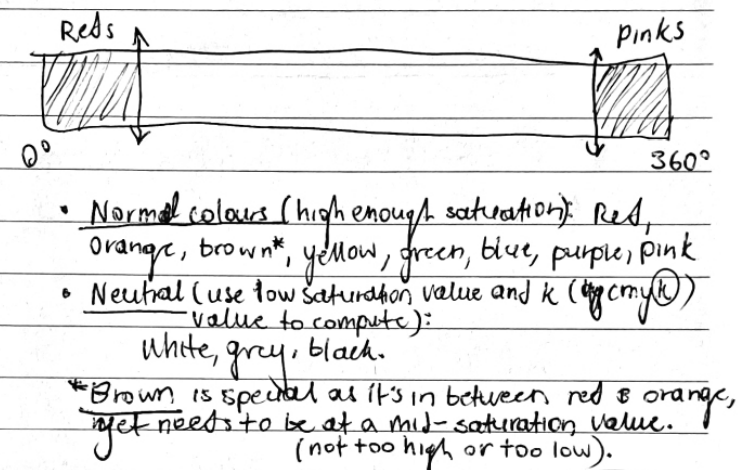 Reds
Pinks
0°
360°
• Normal colours (high enough saturation): Red,
orange, brown*, yellow, green, blue, purple, pink
• Neutral (use low saturation value and k (cmyk)
value to compute):
White, grey, black.
*Brown is special as it's in between red & orange,
yet needs to be at a mid-saturation value.
(not too high or too low).